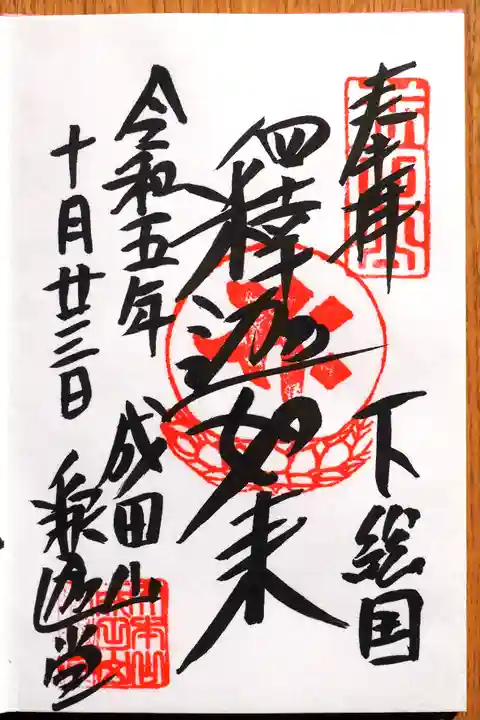 奉拝
下総国
釋迦如来
令和五年
十月廿三日
成田山
釈迦堂